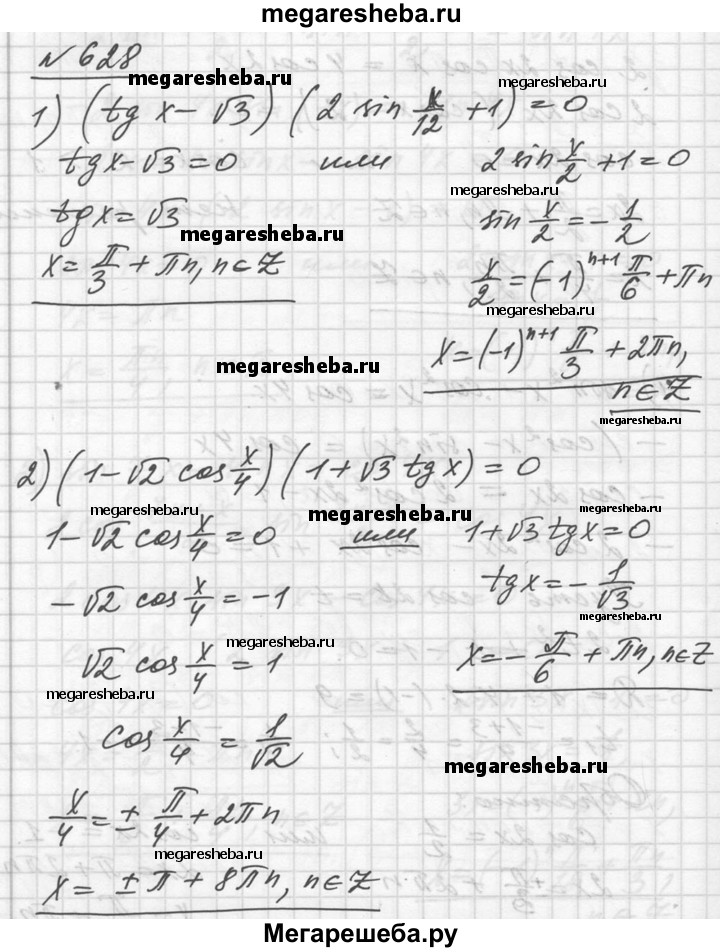 megaresheba.ru
N 628
megaresheba.ru
1) (tg x - √3) (2 sin x/12 + 1) = 0
tg x - √3 = 0 или 2 sin x/2 + 1 = 0
megaresheba.ru
tg x = √3 sin x/2 = - 1/2
megaresheba.ru
x = π/3 + πn, n∈Z x/2 = (-1)^(n+1) π/6 + πn
megaresheba.ru
x = (-1)^(n+1) π/3 + 2πn,
n∈Z
megaresheba.ru
2) (1 - √2 cos x/4) (1 + √3 tg x) = 0
megaresheba.ru
megaresheba.ru
1 - √2 cos x/4 = 0 или 1 + √3 tg x = 0
-√2 cos x/4 = -1 tg x = - 1/√3
megaresheba.ru
megaresheba.ru
√2 cos x/4 = 1 x = - π/6 + πn, n∈Z
megaresheba.ru
cos x/4 = 1/√2
megaresheba.ru
x/4 = ± π/4 + 2πn
megaresheba.ru
x = ± π + 8πn, n∈Z
Мегарешеба.ру